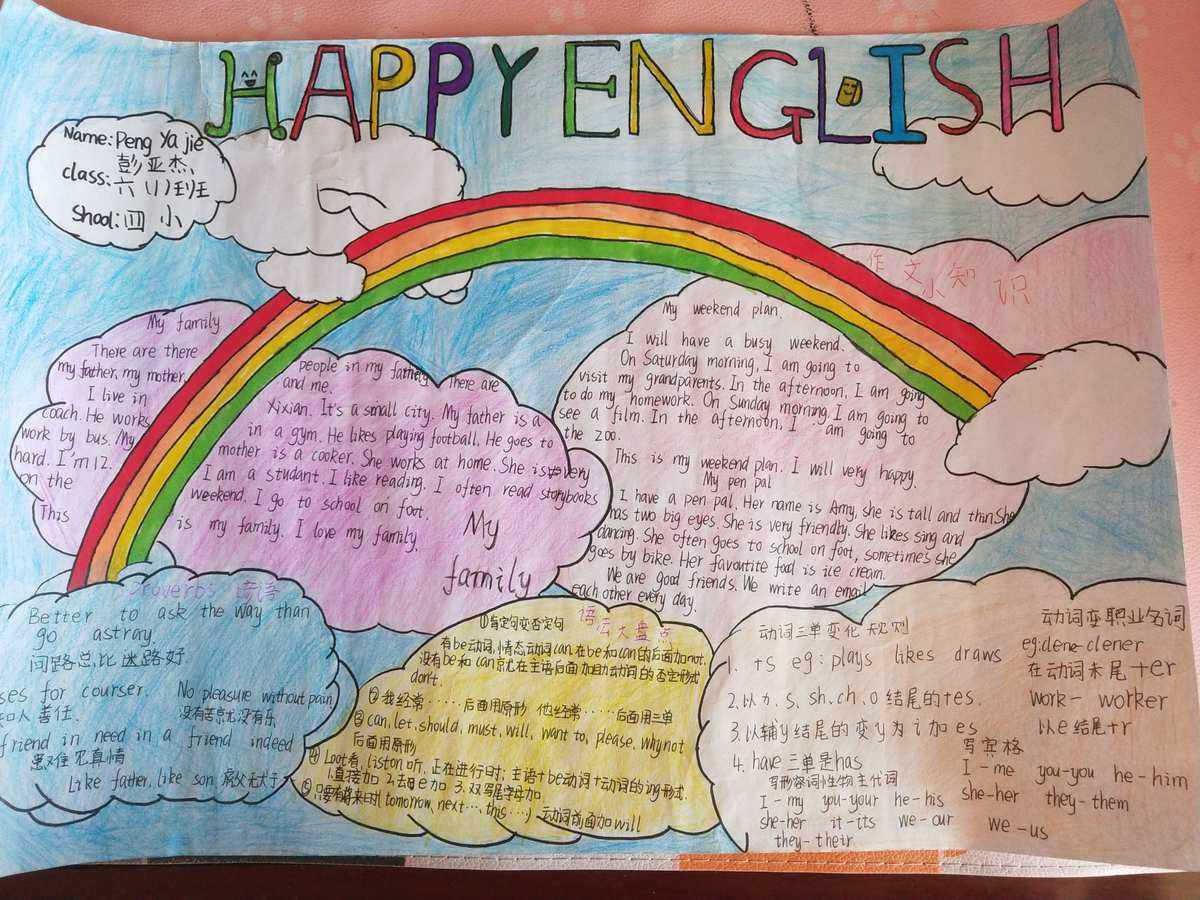 HAPPY ENGLISH
Name: Peng Ya jie
彭亚杰
class: 六(1)班
Shool: 四小
作文小知识
My family
There are there people in my fathery There are
my father, my mother, and me.
I live in Xixian. It's a small city. My father is a
coach. He works in a gym. He likes playing football. He goes to
work by bus. My mother is a cooker. She works at home. She is very
hard. I'm 12. I am a studant. I like reading. I often read storybooks
on the weekend. I go to school on foot.
This is my family. I love my family.
My
family
My weekend plan.
I will have a busy weekend.
On Saturday morning, I am going to
visit my grandparents. In the afternoon, I am going
to do my homework. On Sunday morning I am going to
see a film. In the afternoon, I am going to
the zoo.
This is my weekend plan. I will very happy.
My pen pal
I have a pen pal. Her name is Amy, she is tall and thin. She
has two big eyes. She is very friendly. She likes sing and
dancing. She often goes to school on foot, sometimes she
goes by bike. Her favourite food is ice cream.
We are good friends. We write an email
each other every day.
Proverbs 谚语
Better to ask the way than
go astray
问路总比迷路好.
ses for courser.
知人善任.
No pleasure without pain
没有苦就没有乐
friend in need in a friend indeed
患难见真情
Like father, like son
语法大盘点
①肯定句变否定句
有be动词,情态动词can,在be和can的后面加not,
没有be和can就在主语后面加助动词的否定形式
don't.
②我经常……后面用原形 他经常……后面用三单
③can, let, should, must, will, want to, please, why not
后面用原形
④Loot看, liston听, 正在进行时: 主语+be动词+动词的ing形式.
1.直接加 2.去e加 3.双写尾字母加
⑤只要有将来时(tomorrow, next…, this…) 动词前面加will
动词三单变化规则
1. +s eg: plays likes draws
2. 以x, s, sh, ch, o结尾的+es.
3. 以辅y结尾的变y为i加es
4. have三单是has
写形容词性物主代词
I - my you-your he-his
she-her it-its we-our
they-their
动词变职业名词
eg: clene-clener
在动词末尾+er
work- worker
以e结尾+r
写宾格
I - me you-you he-him
she-her they-them
we-us